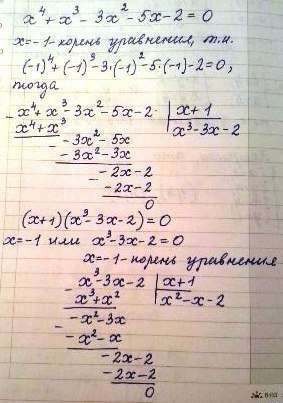 x⁴ + x³ - 3x² - 5x - 2 = 0
x = -1 - корень уравнения, т.к.
(-1)⁴ + (-1)³ - 3·(-1)² - 5·(-1) - 2 = 0,
тогда
- x⁴ + x³ - 3x² - 5x - 2 | x + 1
x⁴ + x³ | x³ - 3x - 2
- -3x² - 5x
-3x² - 3x
- -2x - 2
-2x - 2
0
(x+1)(x³ - 3x - 2) = 0
x = -1 или x³ - 3x - 2 = 0
x = -1 - корень уравнения
- x³ - 3x - 2 | x + 1
x³ + x² | x² - x - 2
- -x² - 3x
-x² - x
- -2x - 2
-2x - 2
0